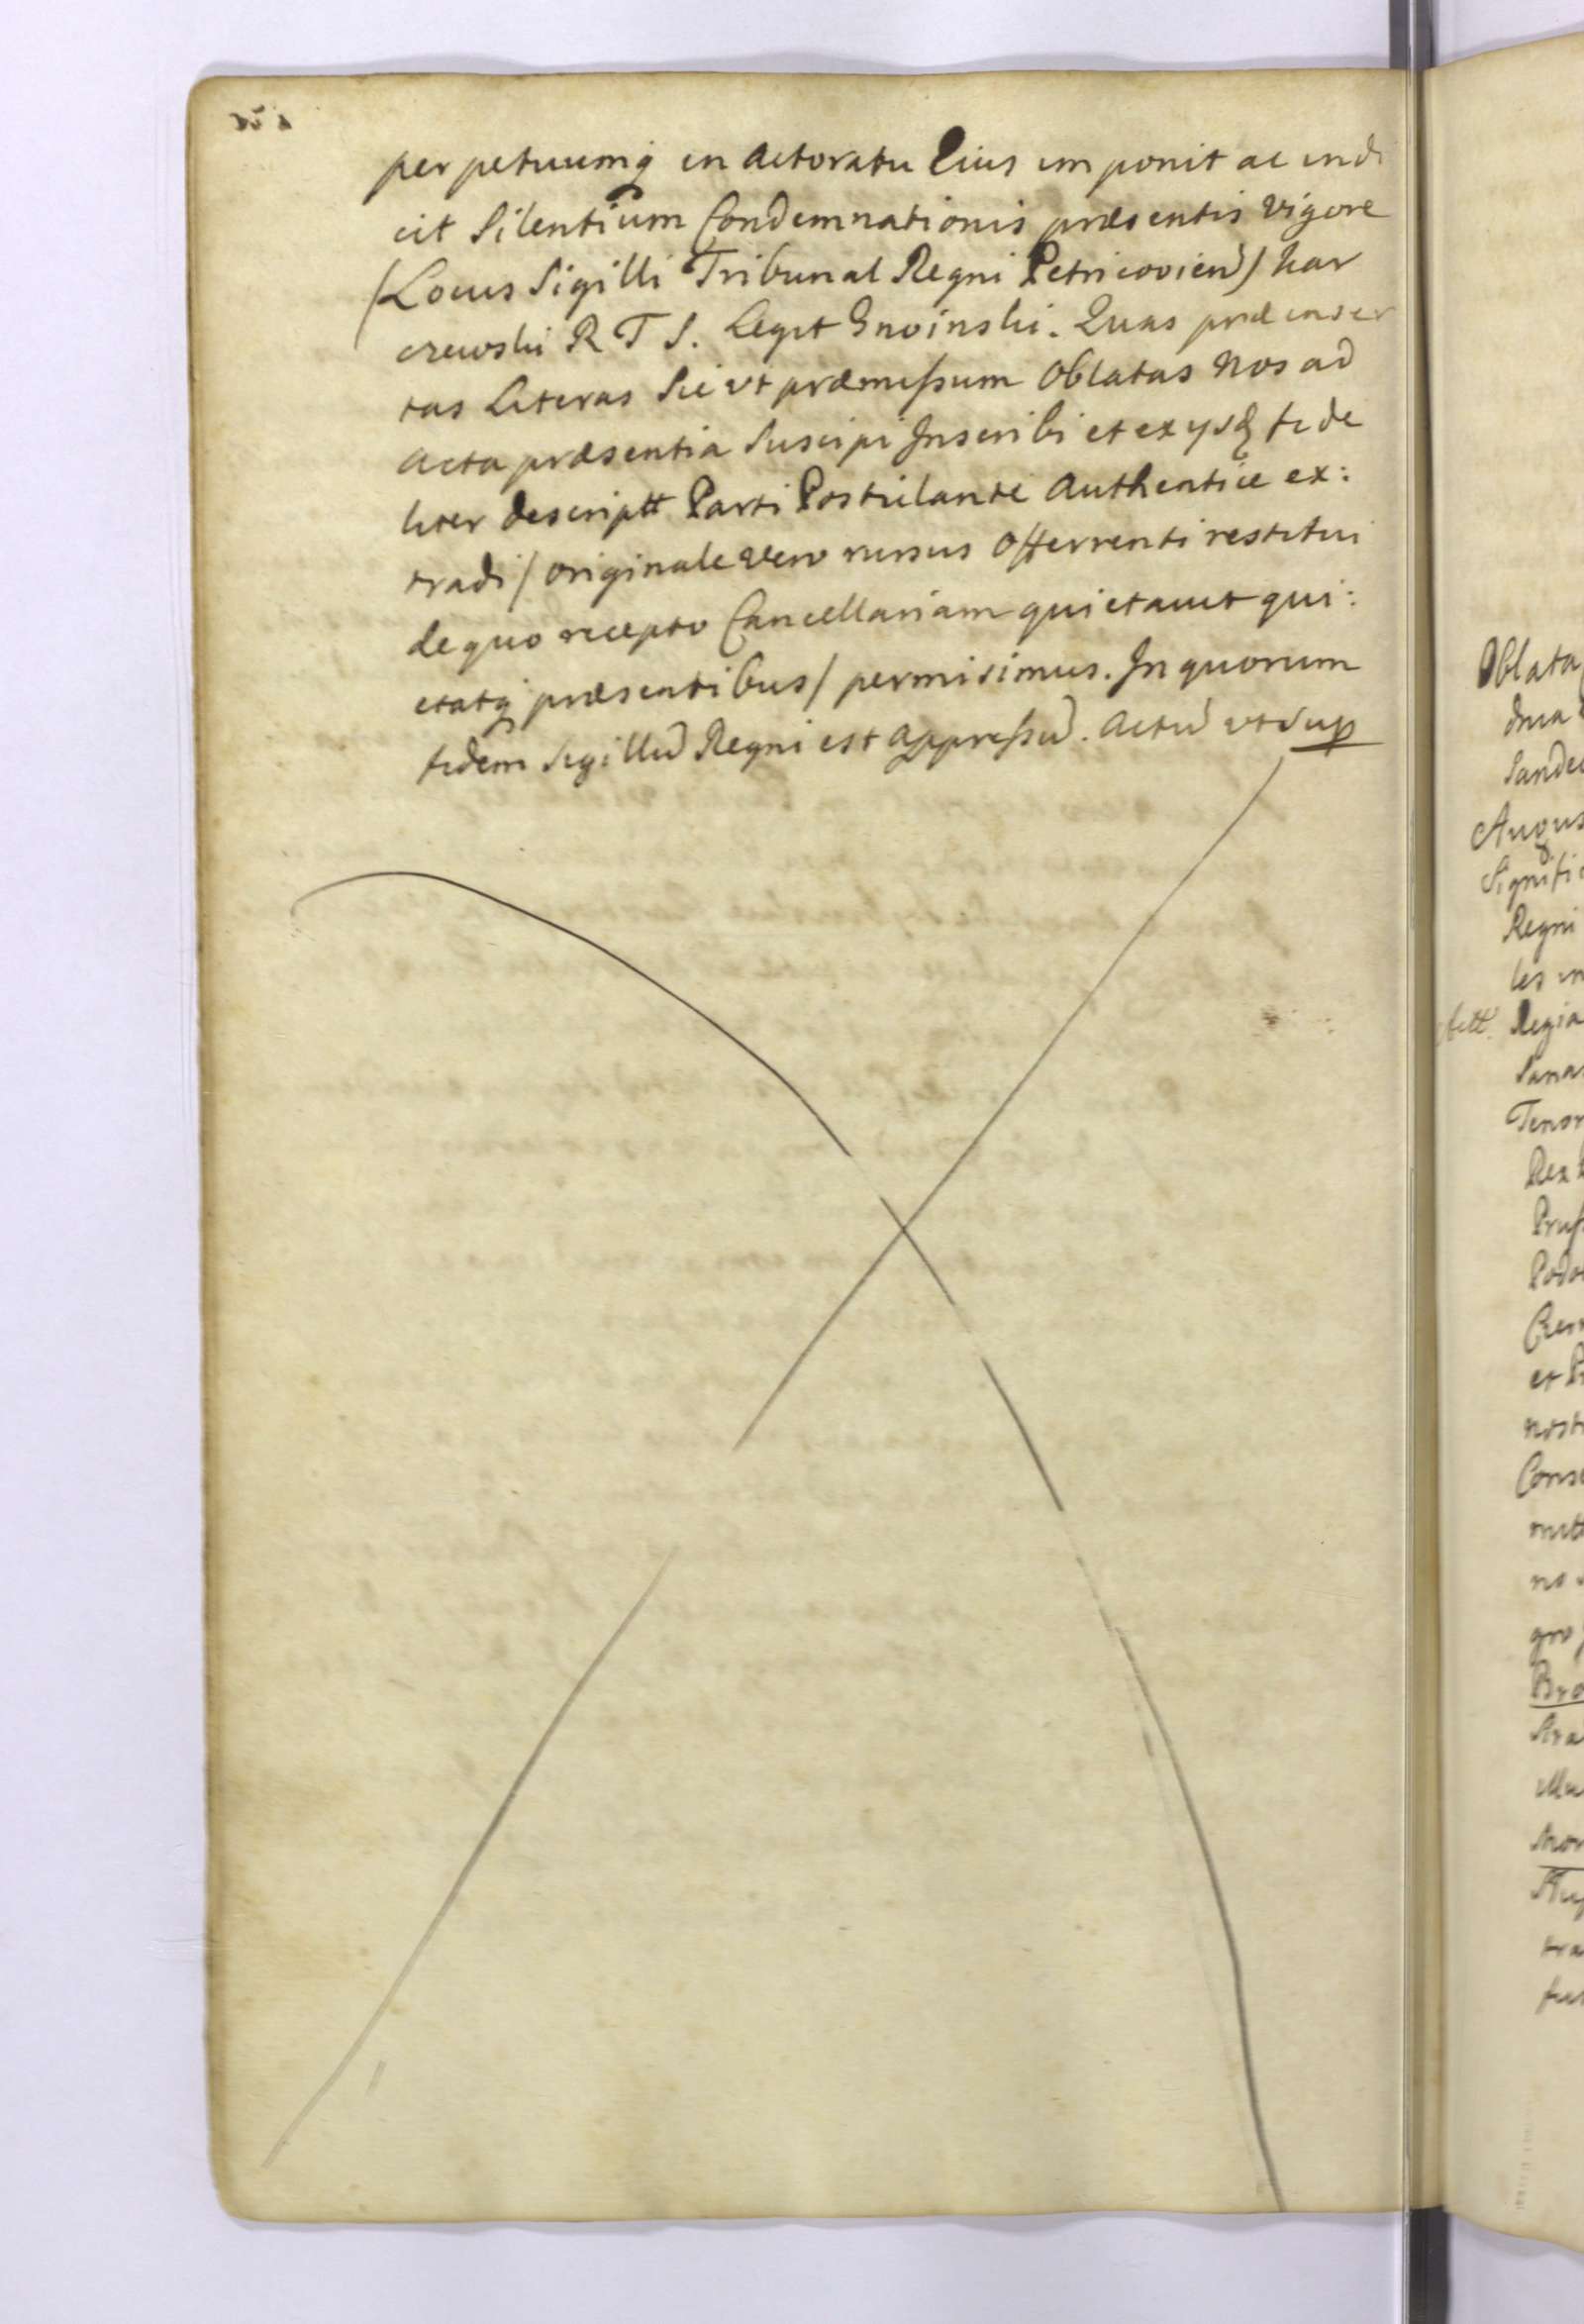 perpetuumq in Actoratu Eius imponit ac indi
cit Silentium Condemnationis præsentis vigore
(Locus Sigilli Tribunal Regni Petricovien) Kar
czewski R T S. Legit Gnoinski. Quas præinser
tas Literas Sic vt præmissum Oblatas Nos ad
Acta præsentia Suscipi Inscribi et ex ysdq fide
liter descriptt Parti Postulanti Authentice ex:
tradi / originale vero rursus Offerrenti restitui
de quo recepto Cancellariam quietavit qui:
etatq præsentibus / permisimus. In quorum
fidem Sigillu Regni est appressu. Actu vt Sup
Oblata
dna
Sande
Augus
Signific
Regni
les in
Regia
Sana
Tenor
Rex
Pruss
Podo
Czer
et P
nost
Cons
mitt
no
gro
Bro
Stra